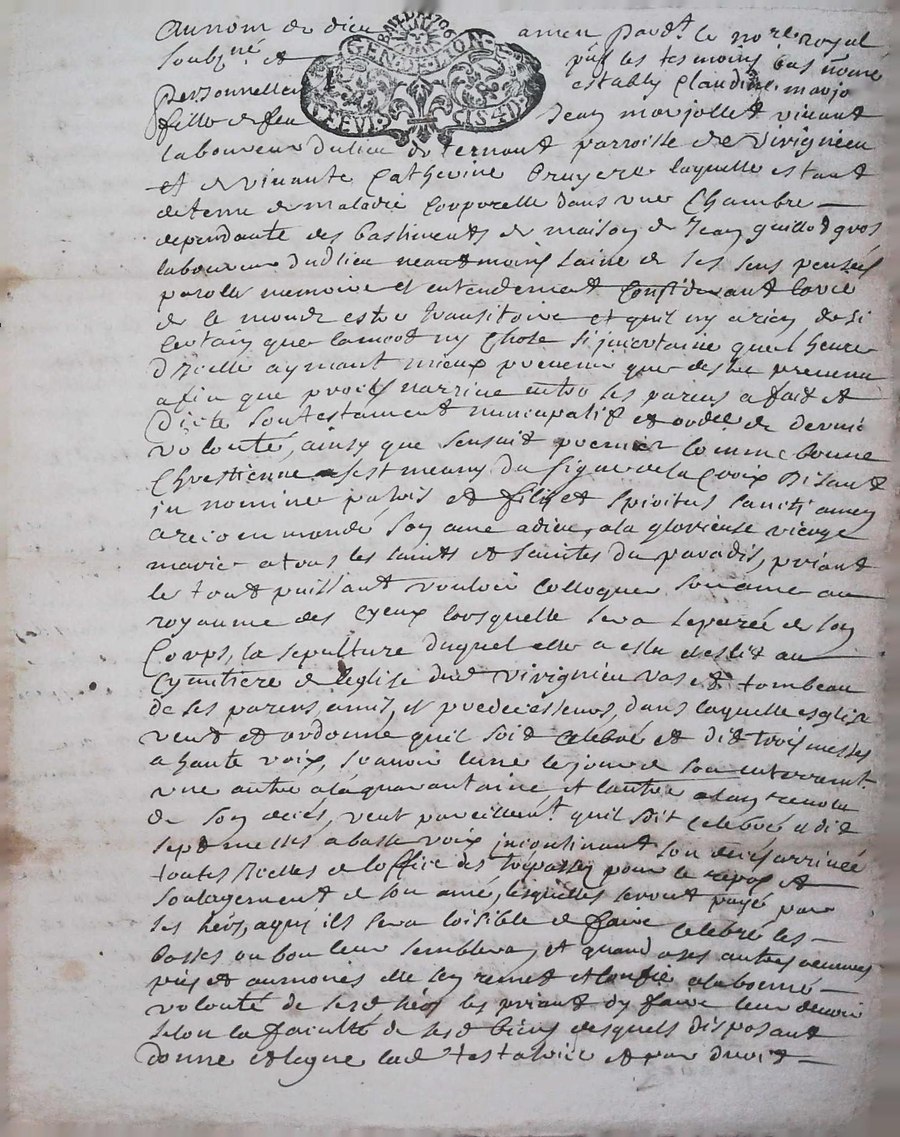 Au nom de dieu amen pard.t le no.re royal
soubz.né et pnt les tesmoins bas nomé
personnellem establÿ Claudine marjo
BAIL DE 1706
GEN·DE·LION
fille de feu Jean marjollet vivant
laboureur du lieu de ternant parroisse de vivignieu
et de vivante Catherine bruyere laquelle estant
detenue de maladie corporelle dans une chambre
dependante des bastiments de maison de Jean guillod gros
laboureur dud lieu neantmoins saine de ses sens pensées
parolle memoire et entendement considerant la vie
de ce monde estre transitoire et quil ny a rien de si
certain que la mort ny chose si incertaine que lheure
dicelle aymant mieux prevenir que destre prevenu
afin que procès narrive entre les parens a fait et
dicté son testament nuncupatif et ord.ce de derniere
volonté, ainsy que sensuit premier comme bonne
chrestienne sest munÿ du signe de la croix disant
in nomine patris et filii et spiritus sancti amen
a recommandé son ame a dieu, a la glorieuse vierge
marie a tous les saints et saintes du paradis, priant
le tout puissant vouloir colloquer son ame au
royaume des cyeux lorsquelle sera separée de son
corps, la sepulture duquel elle a eslu et eslit au
cymitiere de leglise dud vivignieu vas et tombeau
de ses parens, amis, et predecesseurs, dans laquelle esglise
veut et ordonne quil soit celebré et dit trois messes
a haute voix, scavoir lune le jour de son enterrement
une autre a la quarantaine et lautre a lan revolu
de son deces, veut pareillem.t quil soit celebré et dit
sept messes a basse voix incontinant son deces arrivée
toutes icelles de loffice des trepasséz pour le repos et
soulagement de son ame, lesquelles seront payé par
ses hers, a qui ils sera loisible de faire celebré les
basses ou bon leur semblera, et quand a ses autres œuvres
pies et aumones elle sen remet et confie a la bonne
volonté de sesd hers les priant dy faire leur devoir
selon la faculté de sesd biens desquels disposant
donne et legue lad testatrice et par droit